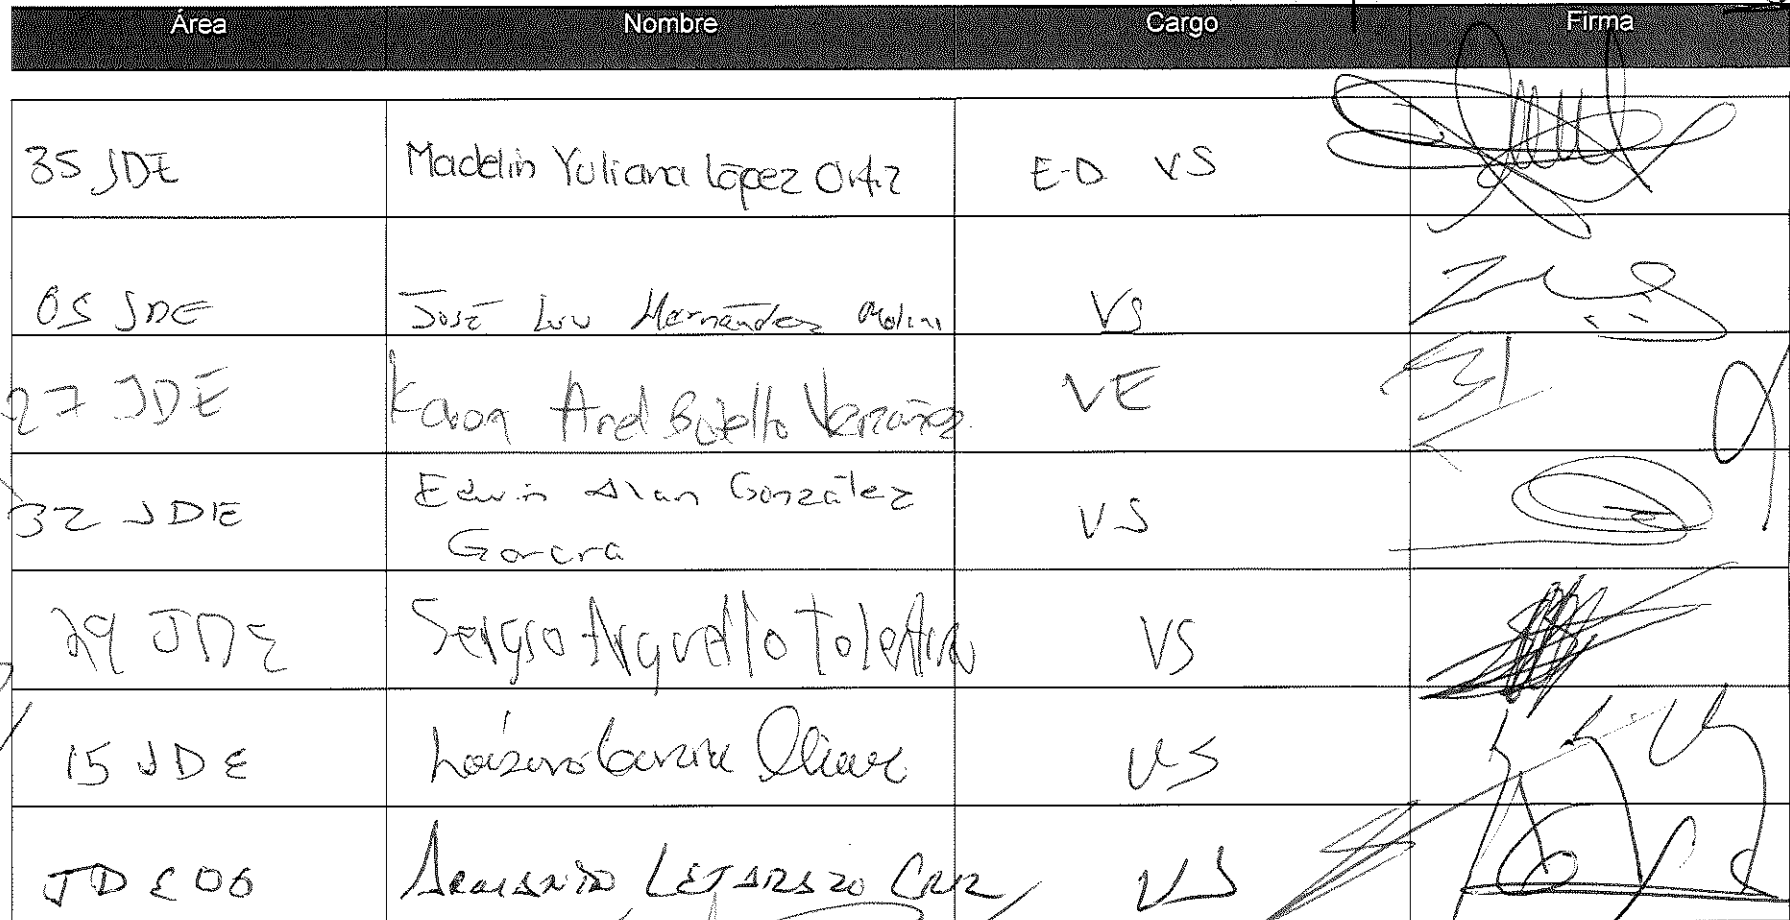 Área Nombre Cargo Firma
35 JDE Madelin Yuliana López Ortiz E-D VS
05 JDE José Luis Hernández Molina VS
27 JDE Karen Anel Botello VE
32 JDE Edwin Alan González VS
29 JDE Sergio Arguello Tolentino VS
15 JDE Lázaro García Olivar VS
JDE 06 Armando Lejarazo Cruz VS